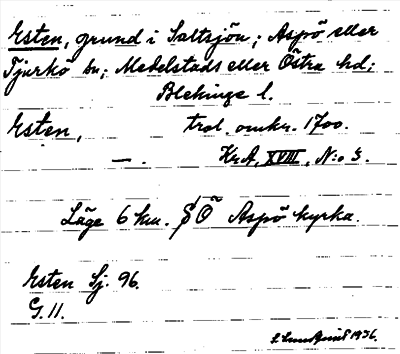 Esten, grund i Saltsjön; Aspö eller
Tjurkö sn; Medelstads eller Östra hd;
Blekinge l.
Esten, trol. omkr. 1700.
—. Kr.A, XVIII, N:o 3.
Läge 6 km. SÖ Aspö kyrka.
Esten Sj. 96.
G. 11.
1936.